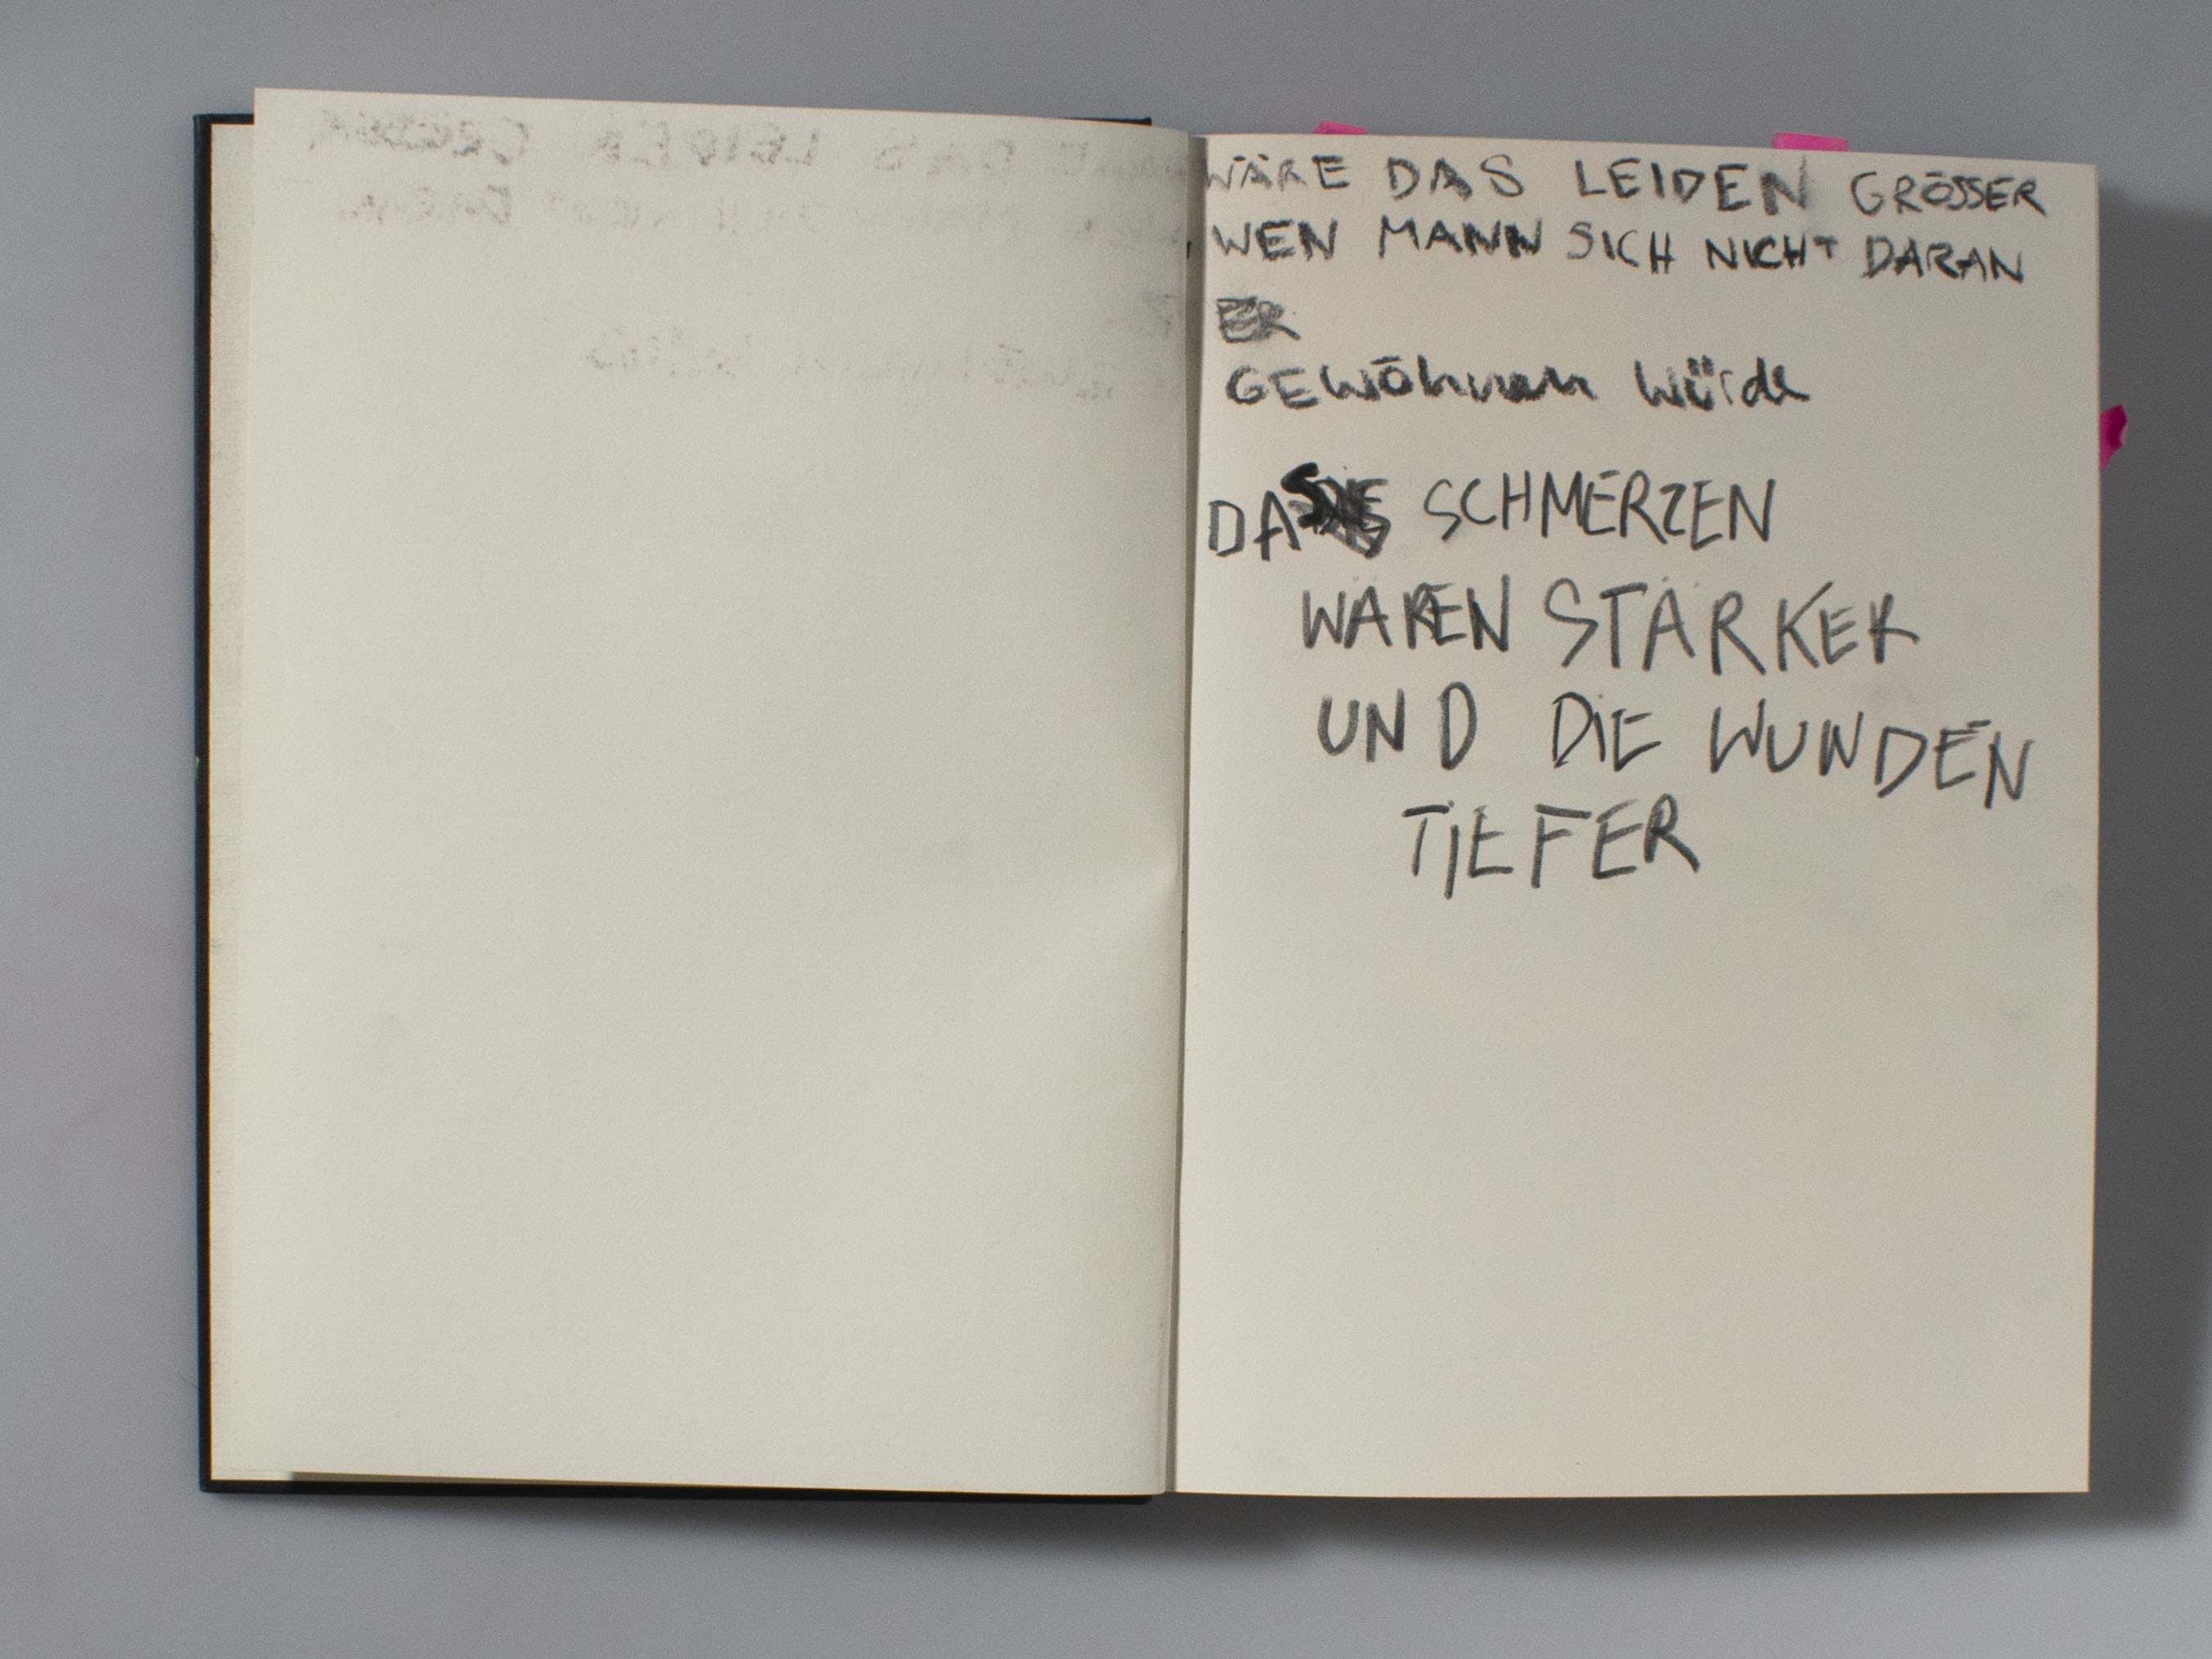 WÄRE DAS LEIDEN GRÖSSER
WEN MANN SICH NICHT DARAN
ER
GEWÖhnen würde
DAS SCHMERZEN
WÄREN STÄRKER
UND DIE WUNDEN
TIEFER